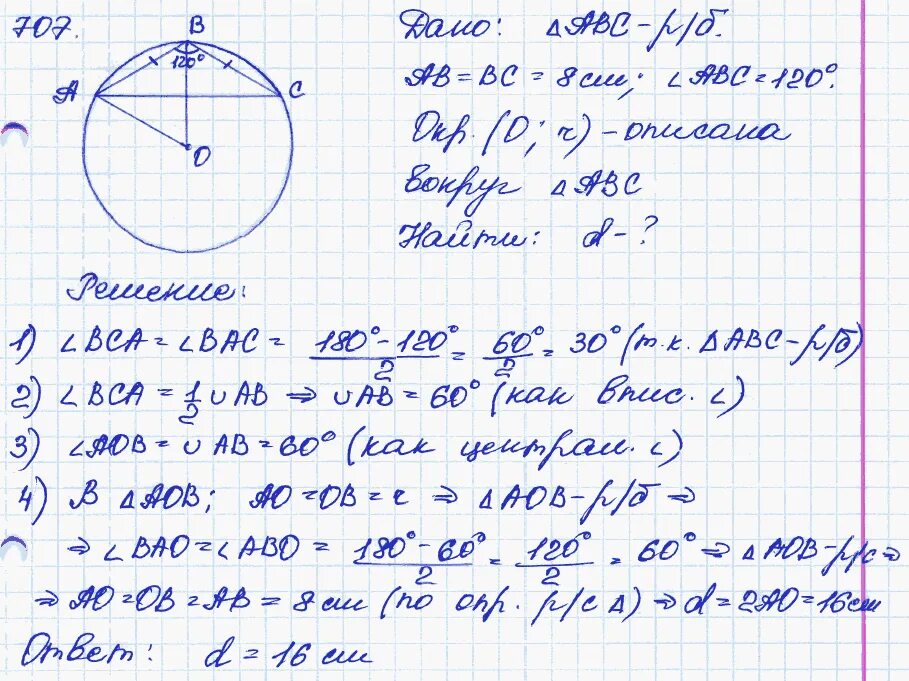 707.
B
120°
A
C
O
Дано: △ABC – р/б.
AB = BC = 8 см; ∠ABC = 120°.
Окр. (O; r) – описана
вокруг △ABC
Найти: d – ?
Решение:
1) ∠BCA = ∠BAC = (180° – 120°)/2 = 60°/2 = 30° (т.к. △ABC – р/б)
2) ∠BCA = 1/2 ∪AB ⇒ ∪AB = 60° (как впис. ∠)
3) ∠AOB = ∪AB = 60° (как централ. ∠)
4) В △AOB; AO = OB = r ⇒ △AOB – р/б ⇒
⇒ ∠BAO = ∠ABO = (180° – 60°)/2 = 120°/2 = 60° ⇒ △AOB – р/с ⇒
⇒ AO = OB = AB = 8 см (по опр. р/с △) ⇒ d = 2AO = 16 см
Ответ: d = 16 см